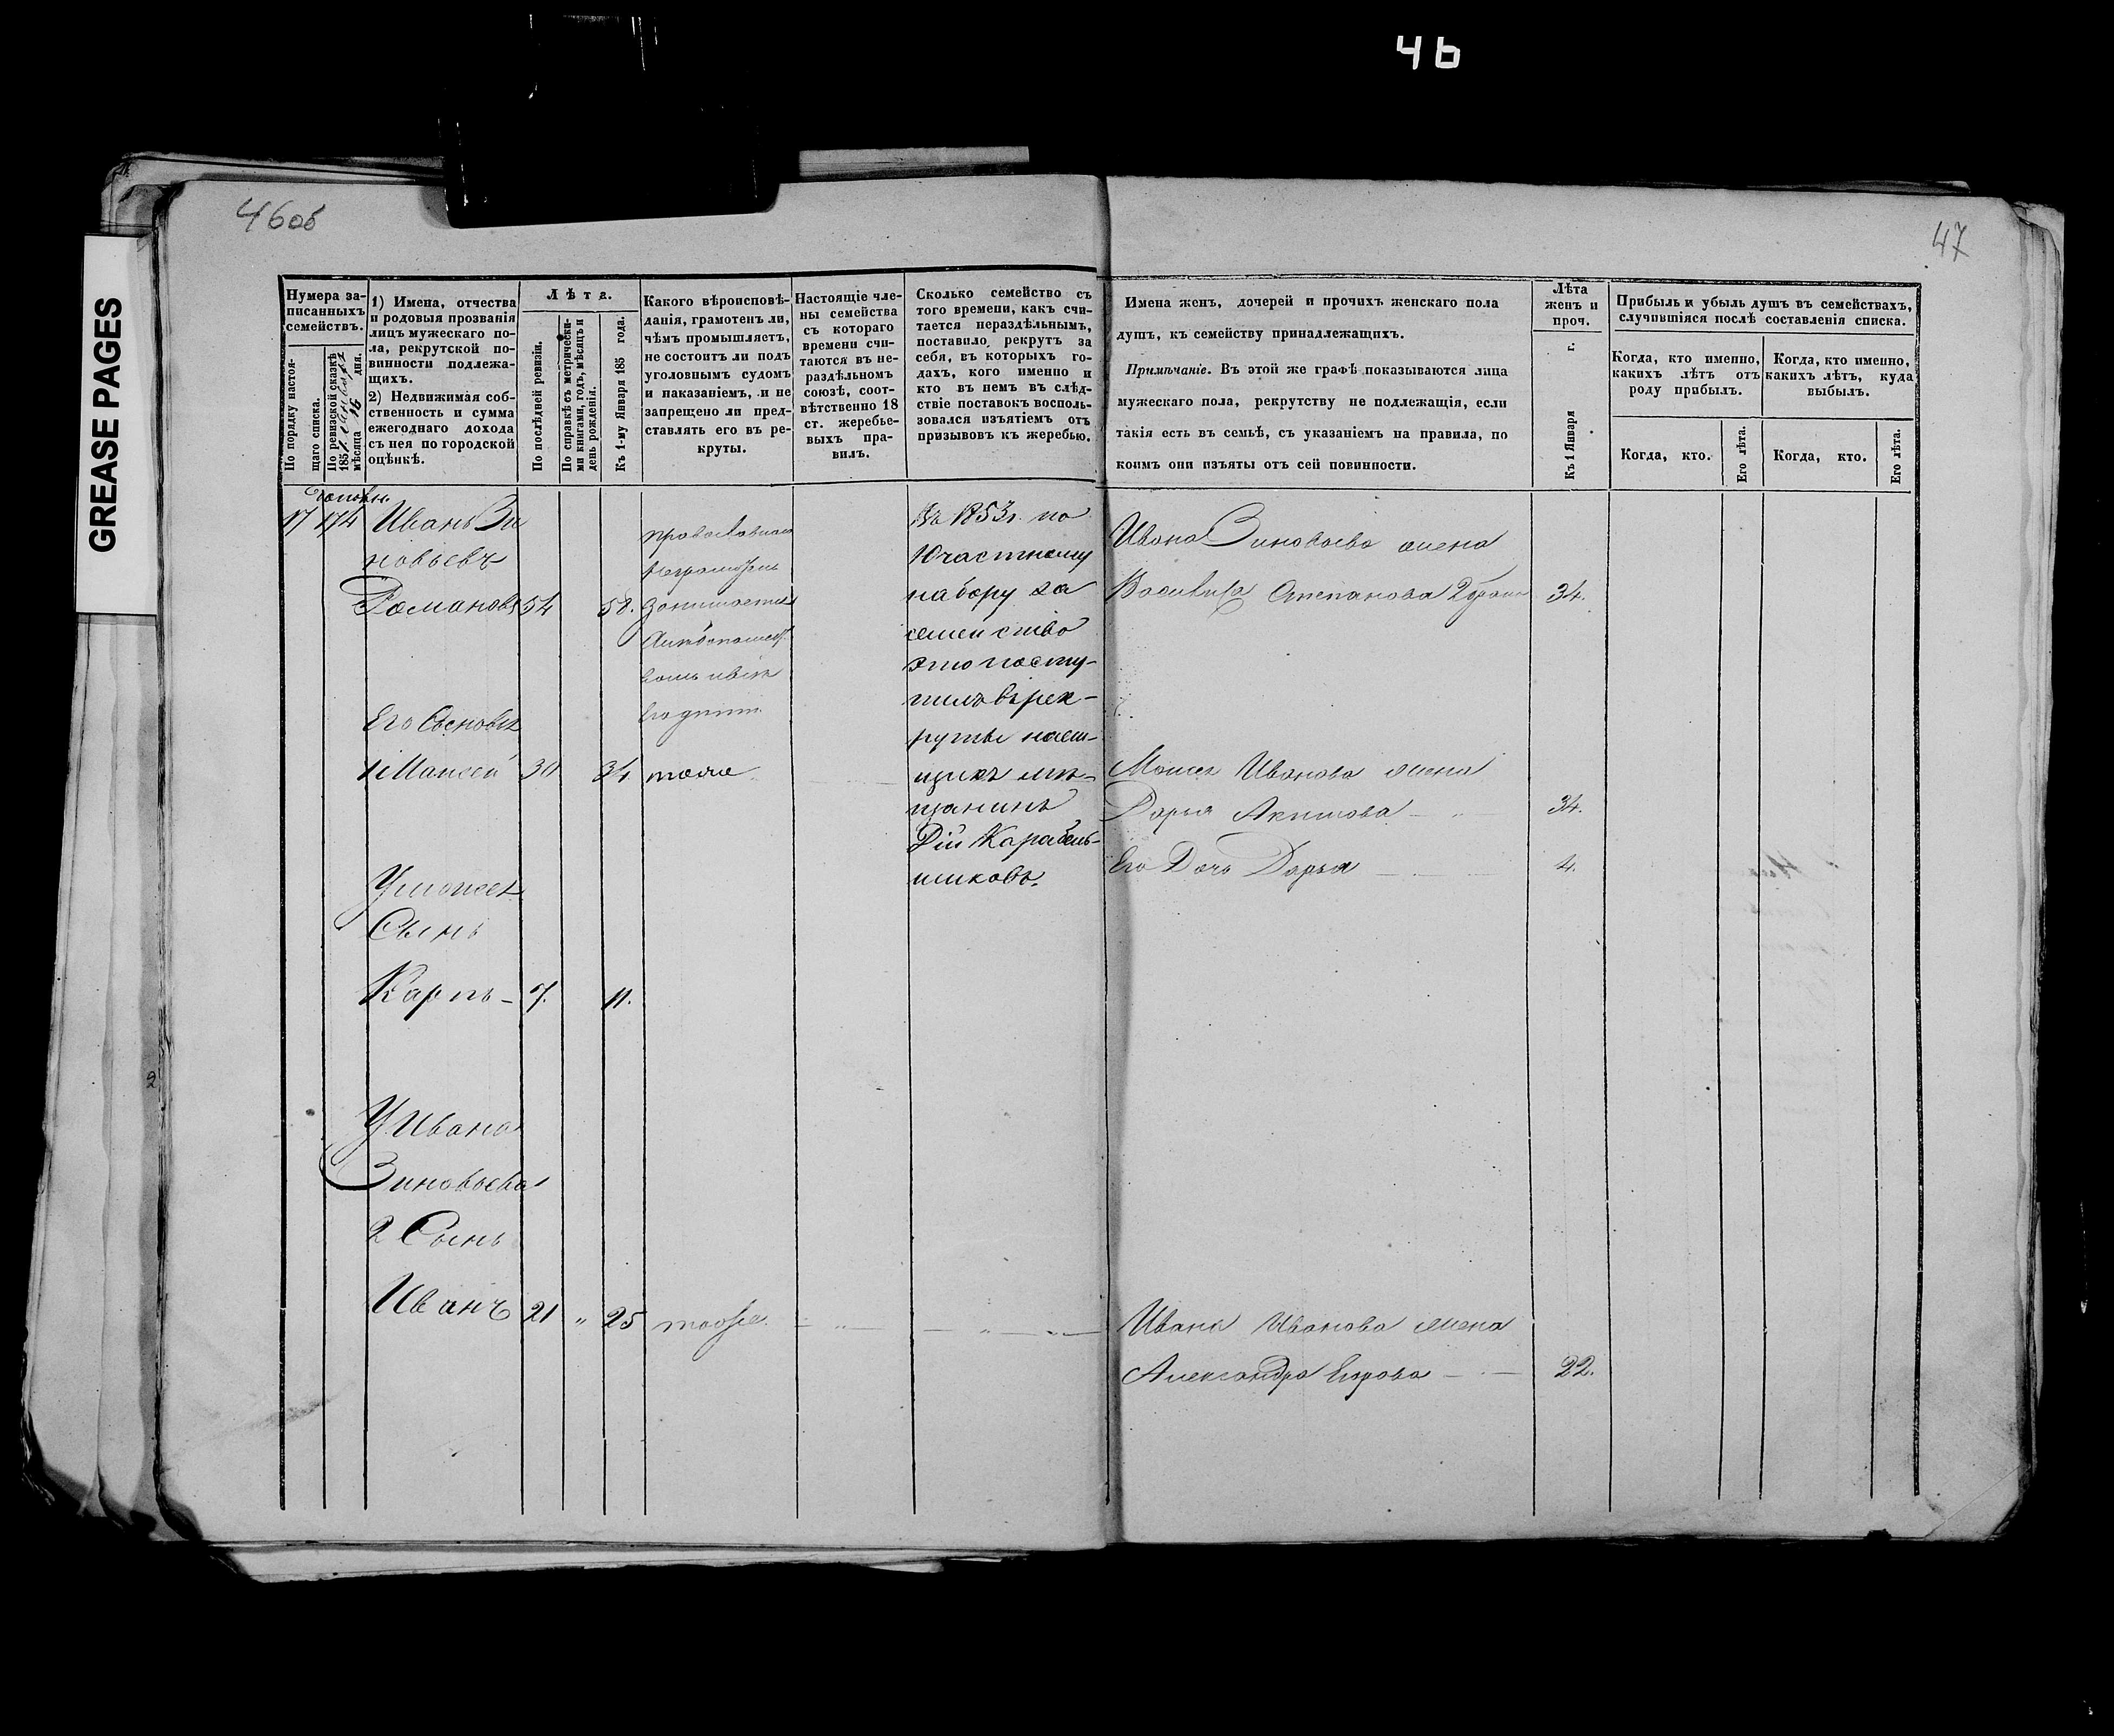 46
46об
47
GREASE PAGES
Нумера записанныхъ семействъ.
По порядку настоящаго списка.
По ревизской сказкѣ 185 мѣсяца 16 дня.
1) Имена, отчества и родовыя прозванія лицъ мужескаго пола, рекрутской повинности подлежащихъ.
2) Недвижимая собственность и сумма ежегоднаго дохода съ нея по городской оцѣнкѣ.
Лѣта.
По послѣдней ревизіи.
По справкѣ съ метрическими книгами, годъ, мѣсяцъ и день рожденія.
Къ 1-му Января 185 года.
Какого вѣроисповѣданія, грамотенъ ли, чѣмъ промышляетъ, не состоитъ ли подъ уголовнымъ судомъ и наказаніемъ, и не запрещено ли представлять его въ рекруты.
Настоящіе члены семейства съ котораго времени считаются въ нераздѣльномъ союзѣ, соотвѣтственно 18 ст. жеребьевыхъ правилъ.
Сколько семейство съ того времени, какъ считается нераздѣльнымъ, поставило рекрутъ за себя, въ которыхъ годахъ, кого именно и кто въ немъ въ слѣдствіе поставокъ воспользовался изъятіемъ отъ призывовъ къ жеребью.
Имена женъ, дочерей и прочихъ женскаго пола
душъ, къ семейству принадлежащихъ.
Примѣчаніе. Въ этой же графѣ показываются лица
мужескаго пола, рекрутству не подлежащія, если
такія есть въ семьѣ, съ указаніемъ на правила, по
коимъ они изъяты отъ сей повинности.
Лѣта женъ и проч.
Къ 1 Января г.
Прибыль и убыль душъ въ семействахъ, случившіяся послѣ составленія списка.
Когда, кто именно, какихъ лѣтъ отъ роду прибылъ.
Когда, кто именно, какихъ лѣтъ, куда выбылъ.
Когда, кто.
Его лѣта.
Когда, кто.
Его лѣта.
17 174 Иванъ Зи
новьевъ
Романовъ 54 58.
Его Сыновья
1 Моисей 30 34 тоже
У Моисея
Сынъ
Карпъ - 7. 11.
У Ивана
Зиновьева
2 Сынъ
Иванъ 21 " 25 тоже
православнаго
неграмотенъ
занимается
Въ 1853г. по
10 частному
набору за
семейство
это посту-
пилъ въ рек-
руты наем-
щикъ мѣ-
щанинъ
Карабель-
щиковъ.
Ивана Зиновьева жена
Василиса Степанова 34.
Моисея Иванова жена
Дарья Акимова 34.
Его Дочь Дарья 4.
Ивана Иванова жена
Александра Егорова 22.